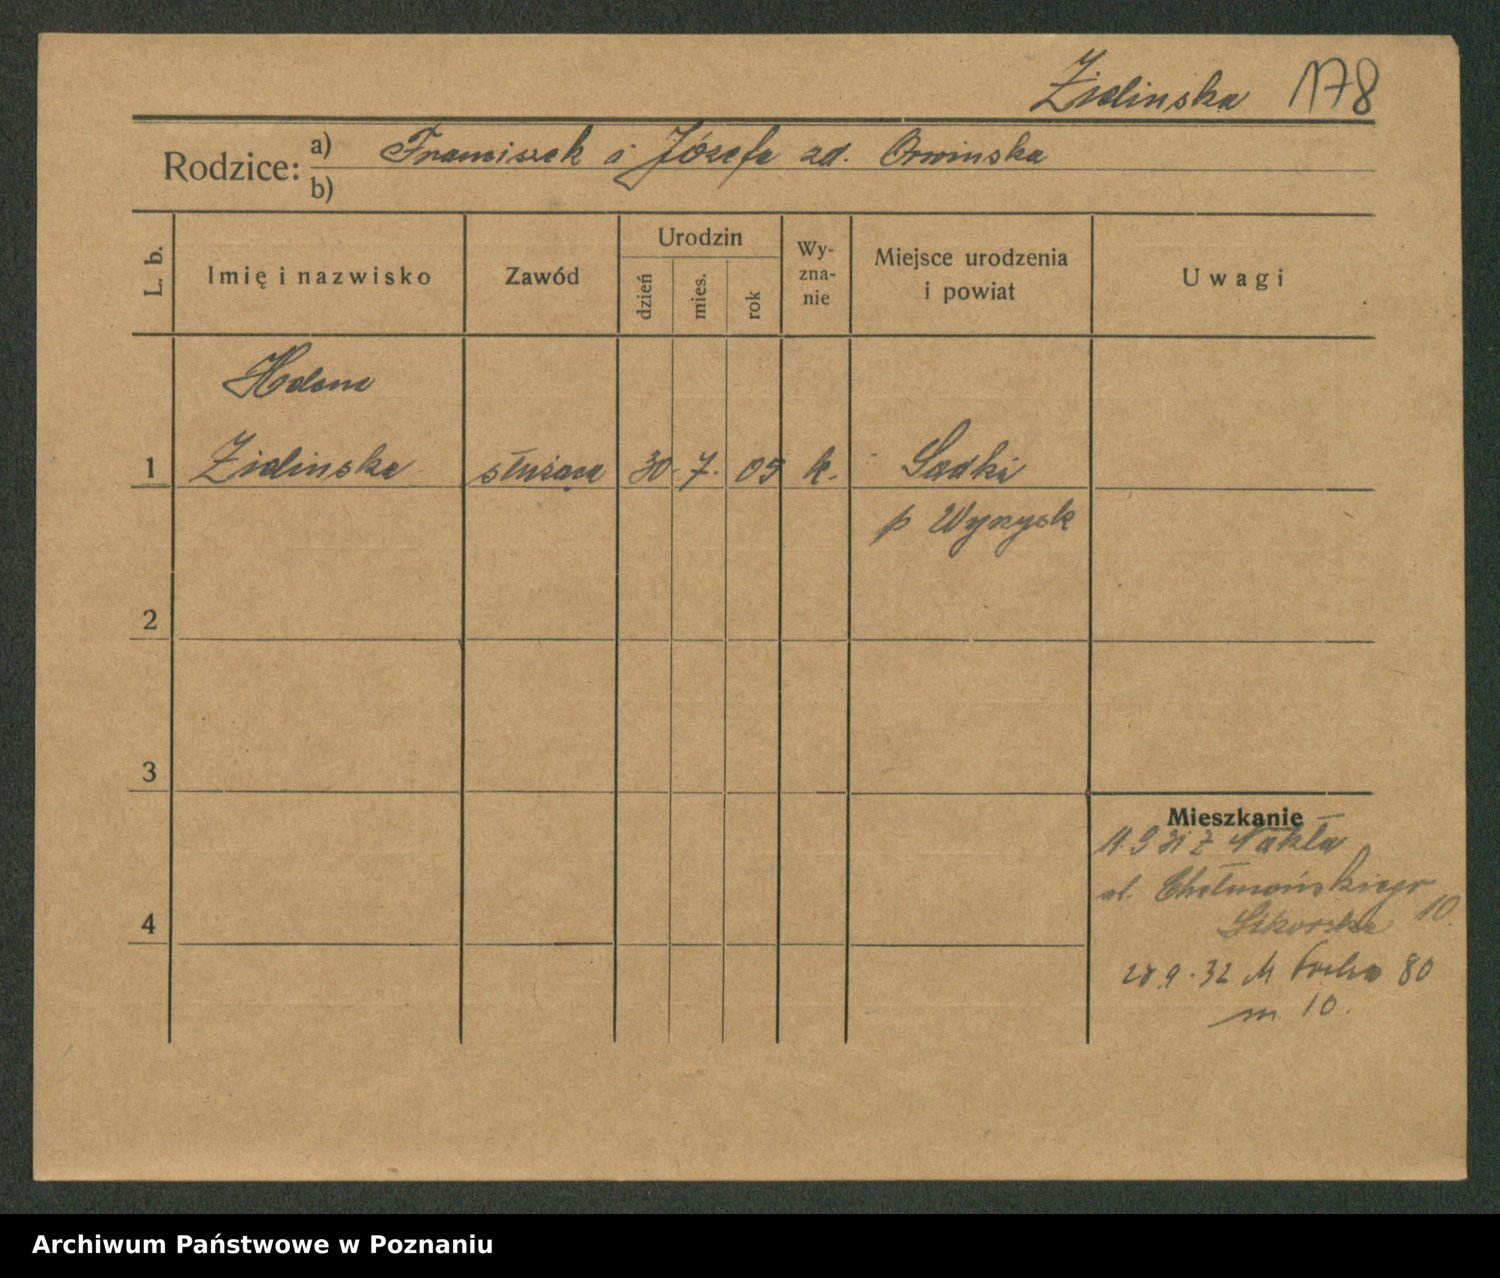 Zielinska 178
Rodzice: a) Franciszek i Józefa zd. Orwinska
b)
L. b.
Imię i nazwisko
Zawód
Urodzin
dzień
mies.
rok
Wy-
zna-
nie
Miejsce urodzenia
i powiat
Uwagi
Helena
1 Zielinska służąca 30. 7. 09 k. Sadki
p Wyrzysk
2
3
4
Mieszkanie
11 9 31 z Nakła
ul. Chełmońskiego 10.
Sikorska
28.9.32 M Focha 80
m. 10.
Archiwum Państwowe w Poznaniu